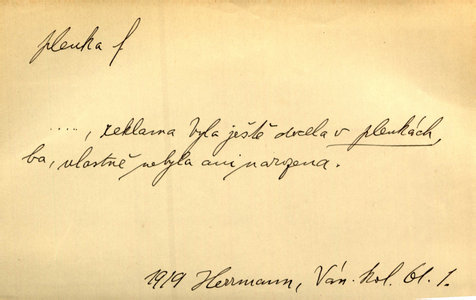 plenka f
....., reklama byla ještě docela v plenkách,
ba, vlastně nebyla ani narozena.
1919 Herrmann, Ván. kol. 61. 1.